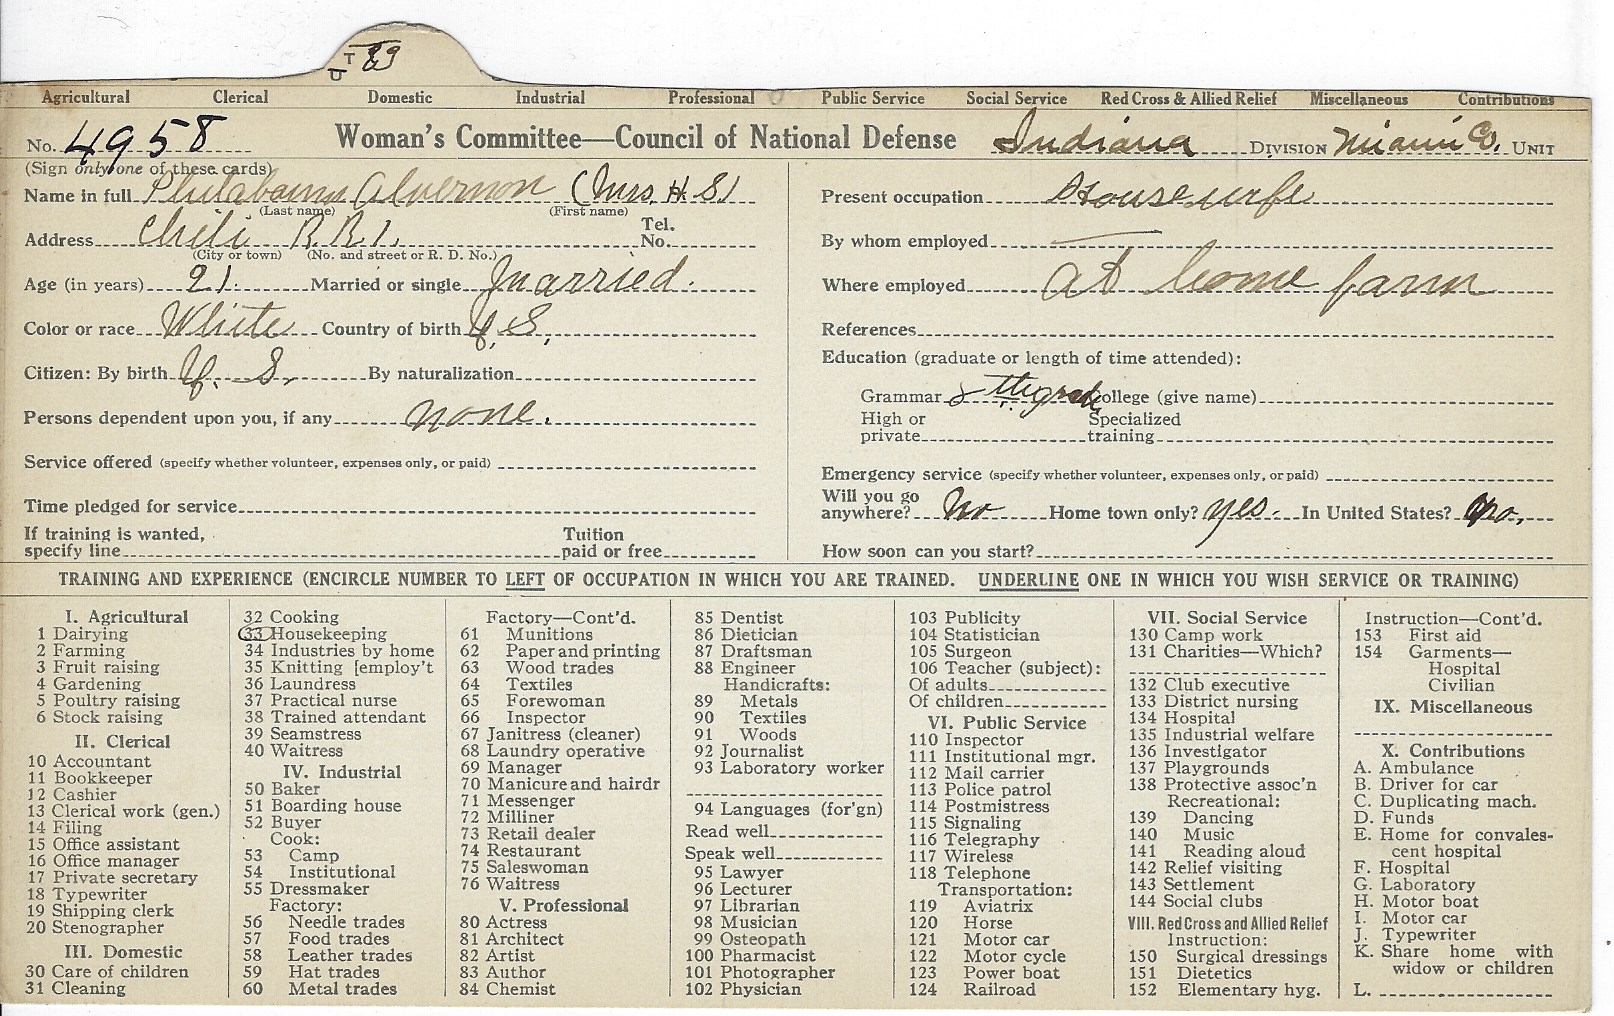 T U 89
Agricultural Clerical Domestic Industrial Professional Public Service Social Service Red Cross & Allied Relief Miscellaneous Contributions
No. 4958 Woman's Committee—Council of National Defense Indiana DIVISION Miami Co. UNIT
(Sign only one of these cards)
Name in full Philabaum Alvernon (Mrs. H. S.)
(Last name) (First name)
Address Chili R.R.1. Tel. No.
(City or town) (No. and street or R. D. No.)
Age (in years) 21. Married or single Married.
Color or race White Country of birth U.S.
Citizen: By birth U. S. By naturalization
Persons dependent upon you, if any none.
Service offered (specify whether volunteer, expenses only, or paid)
Time pledged for service
If training is wanted, specify line Tuition paid or free
Present occupation Housewife
By whom employed
Where employed at home farm
References
Education (graduate or length of time attended):
Grammar 8th grade College (give name)
High or private Specialized training
Emergency service (specify whether volunteer, expenses only, or paid)
Will you go anywhere? No Home town only? yes. In United States? no.
How soon can you start?
TRAINING AND EXPERIENCE (ENCIRCLE NUMBER TO LEFT OF OCCUPATION IN WHICH YOU ARE TRAINED. UNDERLINE ONE IN WHICH YOU WISH SERVICE OR TRAINING)
I. Agricultural
1 Dairying
2 Farming
3 Fruit raising
4 Gardening
5 Poultry raising
6 Stock raising
II. Clerical
10 Accountant
11 Bookkeeper
12 Cashier
13 Clerical work (gen.)
14 Filing
15 Office assistant
16 Office manager
17 Private secretary
18 Typewriter
19 Shipping clerk
20 Stenographer
III. Domestic
30 Care of children
31 Cleaning
32 Cooking
33 Housekeeping
34 Industries by home
35 Knitting [employ't
36 Laundress
37 Practical nurse
38 Trained attendant
39 Seamstress
40 Waitress
IV. Industrial
50 Baker
51 Boarding house
52 Buyer
Cook:
53 Camp
54 Institutional
55 Dressmaker
Factory:
56 Needle trades
57 Food trades
58 Leather trades
59 Hat trades
60 Metal trades
Factory—Cont'd.
61 Munitions
62 Paper and printing
63 Wood trades
64 Textiles
65 Forewoman
66 Inspector
67 Janitress (cleaner)
68 Laundry operative
69 Manager
70 Manicure and hairdr
71 Messenger
72 Milliner
73 Retail dealer
74 Restaurant
75 Saleswoman
76 Waitress
V. Professional
80 Actress
81 Architect
82 Artist
83 Author
84 Chemist
85 Dentist
86 Dietician
87 Draftsman
88 Engineer
Handicrafts:
89 Metals
90 Textiles
91 Woods
92 Journalist
93 Laboratory worker
94 Languages (for'gn)
Read well
Speak well
95 Lawyer
96 Lecturer
97 Librarian
98 Musician
99 Osteopath
100 Pharmacist
101 Photographer
102 Physician
103 Publicity
104 Statistician
105 Surgeon
106 Teacher (subject):
Of adults
Of children
VI. Public Service
110 Inspector
111 Institutional mgr.
112 Mail carrier
113 Police patrol
114 Postmistress
115 Signaling
116 Telegraphy
117 Wireless
118 Telephone
Transportation:
119 Aviatrix
120 Horse
121 Motor car
122 Motor cycle
123 Power boat
124 Railroad
VII. Social Service
130 Camp work
131 Charities—Which?
132 Club executive
133 District nursing
134 Hospital
135 Industrial welfare
136 Investigator
137 Playgrounds
138 Protective assoc'n
Recreational:
139 Dancing
140 Music
141 Reading aloud
142 Relief visiting
143 Settlement
144 Social clubs
VIII. Red Cross and Allied Relief
Instruction:
150 Surgical dressings
151 Dietetics
152 Elementary hyg.
Instruction—Cont'd.
153 First aid
154 Garments—
Hospital
Civilian
IX. Miscellaneous
X. Contributions
A. Ambulance
B. Driver for car
C. Duplicating mach.
D. Funds
E. Home for convales-
cent hospital
F. Hospital
G. Laboratory
H. Motor boat
I. Motor car
J. Typewriter
K. Share home with
widow or children
L.